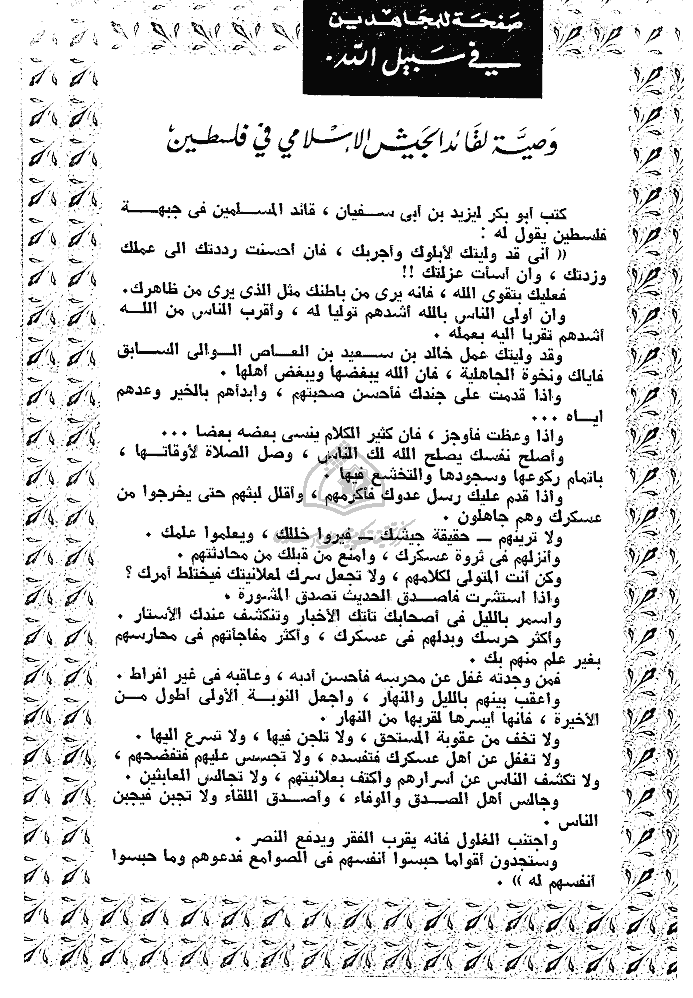 صفحة للمجاهدين
في سبيل الله .
وصية لقائد الجيش الإسلامي في فلسطين
كتب أبو بكر ليزيد بن أبى سـفيان ، قائد المسلمين فى جبهـة
فلسطين يقول له :
(( أنى قد وليتك لأبلوك وأجربك ، فان أحسنت رددتك الى عملك
وزدتك ، وان أسأت عزلتك !!
فعليك بتقوى الله ، فانه يرى من باطنك مثل الذى يرى من ظاهرك.
وان أولى الناس بالله أشدهم توليا له ، وأقرب الناس من اللـه
أشدهم تقربا اليه بعمله .
وقد وليتك عمل خالد بن سـعيد بن العـاص الـوالى السـابق
فاياك ونخوة الجاهلية ، فان الله يبغضها ويبغض أهلها .
واذا قدمت على جندك فأحسن صحبتهم ، وابدأهم بالخير وعدهم
ايـاه ...
واذا وعظت فأوجز ، فان كثير الكلام ينسى بعضه بعضا ...
وأصلح نفسك يصلح الله لك الناس ، وصل الصلاة لأوقاتـها ،
باتمام ركوعها وسجودها والتخشع فيها .
واذا قدم عليك رسل عدوك فأكرمهم ، وأقلل لبثهم حتى يخرجوا من
عسكرك وهم جاهلون .
ولا ترينهم — حقيقة جيشك — فيروا خللك ، ويعلموا علمك .
وأنزلهم فى ثروة عسكرك ، وامنع من قبلك من محادثتهم .
وكن أنت المتولى لكلامهم ، ولا تجعل سرك لعلانيتك فيختلط أمرك ؟
واذا استشرت فاصـدق الحديث تصدق المشورة .
واسمر بالليل فى أصحابك تأتك الأخبار وتنكشف عندك الأستار .
وأكثر حرسك وبدلهم فى عسكرك ، وأكثر مفاجأتهم فى محارسهم
بغير علم منهم بك .
فمن وجدته غفل عن محرسه فأحسن أدبه ، وعاقبه فى غير افراط .
وأعقب بينهم بالليل والنهار ، واجعل النوبـة الأولى أطول مـن
الأخيرة ، فانها أيسرها لقربها من النهار .
ولا تخف من عقوبة المستحق ، ولا تلجن فيها ، ولا تسرع اليها .
ولا تغفل عن أهل عسكرك فتفسده ، ولا تجسس عليهم فتفضحهم ،
ولا تكشف الناس عن أسرارهم واكتف بعلانيتهم ، ولا تجالس العابثين .
وجالس أهل الصـدق والوفاء ، واصـدق اللقاء ولا تجبن فيجبن
الناس .
واجتنب الغلول فانه يقرب الفقر ويدفع النصر .
وستجدون أقواما حبسوا أنفسهم فى الصوامع فدعوهم وما حبسوا
أنفسهم له )) .